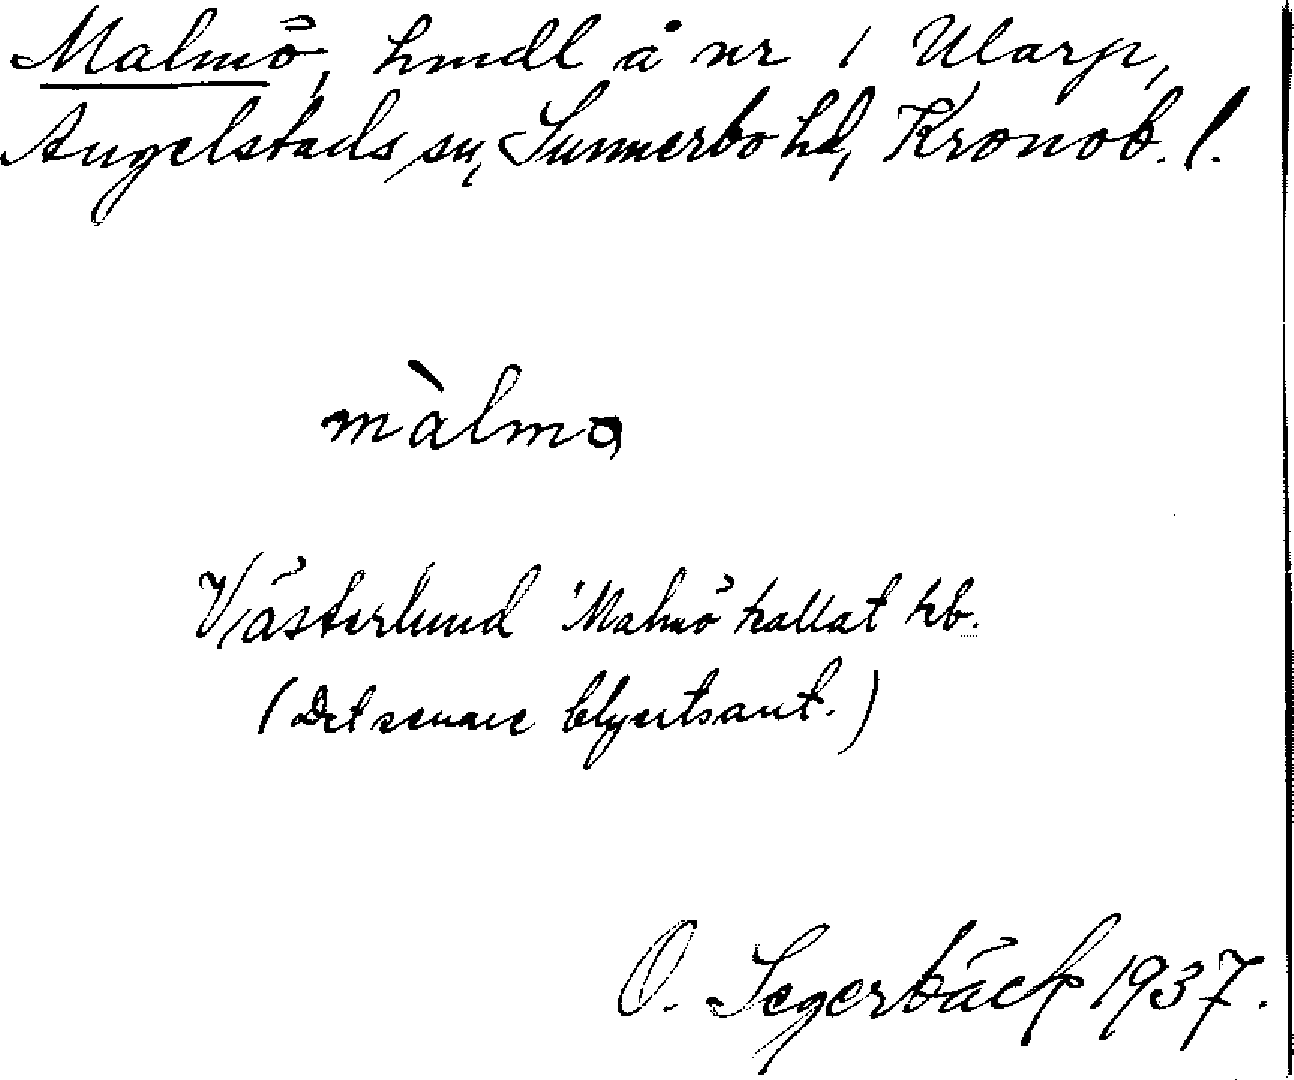 Malmö, hmdl å nr 1 Ularp,
Angelstads sn, Sunnerbo hd, Kronob. l.
màlmo
Västerlund "Malmö kallat hb.
(Det senare blyertsant.)
O. Segerbäck 1937.